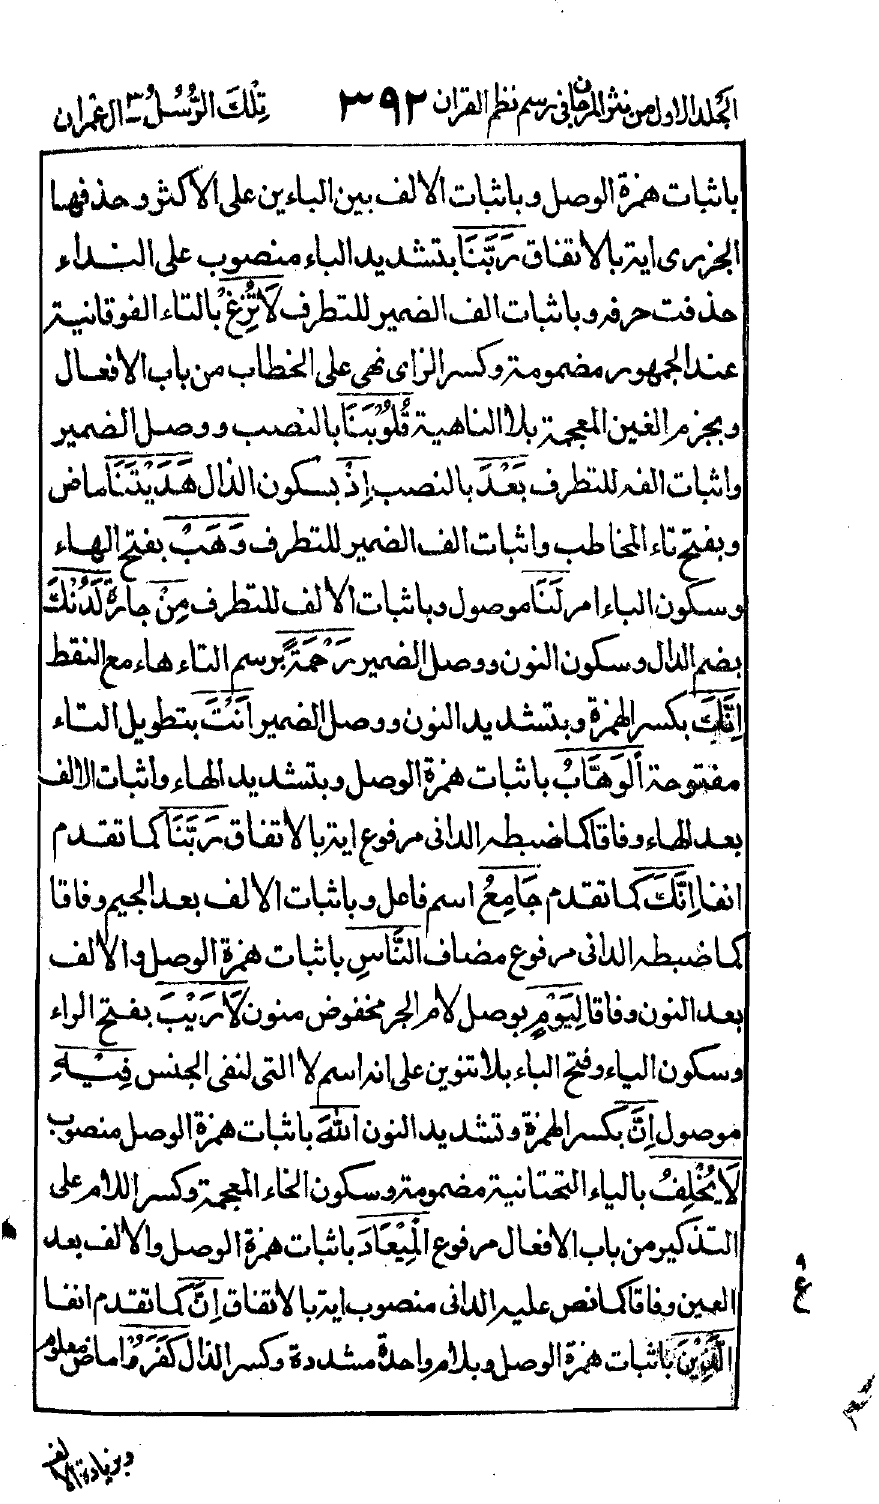 الجلد الاول من نثر المرجان في رسم نظم القران ٣٩٢ تِلْكَ الرُّسُلُ ٣ ال عمران
باثبات همزة الوصل وباثبات الالف بين الباءين على الاكثر وحذفها
الجزرى اية بالاتفاق رَبَّنَا بتشديد الباء منصوب على النداء
حذفت حرفه وباثبات الف الضمير للتطرف لَا تُزِغْ بالتاء الفوقانية
عند الجمهور مضمومة وكسر الزاى نهى على الخطاب من باب الافعال
وبجزم الغين المعجمة بلا الناهية قُلُوْبَنَا بالنصب ووصل الضمير
واثبات الفه للتطرف بَعْدَ بالنصب اِذْ بسكون الذال هَدَيْتَنَا ماض
وبفتح تاء المخاطب واثبات الف الضمير للتطرف وَهَبْ بفتح الهاء
وسكون الباء امر لَنَا موصول وباثبات الالف للتطرف مِنْ جارة لَّدُنْكَ
بضم الدال وسكون النون ووصل الضمير رَحْمَةً برسم التاء هاء مع النقط
اِنَّكَ بكسر الهمزة وبتشديد النون ووصل الضمير اَنْتَ بتطويل التاء
مفتوحة اَلْوَهَّابُ باثبات همزة الوصل وبتشديد الهاء واثبات الالف
بعد الهاء وفاقا كما ضبطه الدانى مرفوع اية بالاتفاق رَبَّنَا كما تقدم
انفا اِنَّكَ كما تقدم جَامِعُ اسم فاعل وباثبات الالف بعد الجيم وفاقا
كما ضبطه الدانى مرفوع مضاف النَّاسِ باثبات همزة الوصل والالف
بعد النون وفاقا لِيَوْمٍ بوصل لام الجر مخفوض منون لَا رَيْبَ بفتح الراء
وسكون الياء وفتح الباء بلا تنوين على انه اسم لا التى لنفى الجنس فِيْهِ
موصول اِنَّ بكسر الهمزة وتشديد النون اللّٰهَ باثبات همزة الوصل منصوب
لَا يُخْلِفُ بالياء التحتانية مضمومة وسكون الخاء المعجمة وكسر اللام على
التذكير من باب الافعال مرفوع الْمِيْعَادَ باثبات همزة الوصل والالف بعد
العين وفاقا كما نص عليه الدانى منصوب اية بالاتفاق اِنَّ كما تقدم انفا
الَّذِيْنَ باثبات همزة الوصل وبلام واحدة مشددة وكسر الذال كَفَرُوْا ماض معلوم
وبزيادة الالف